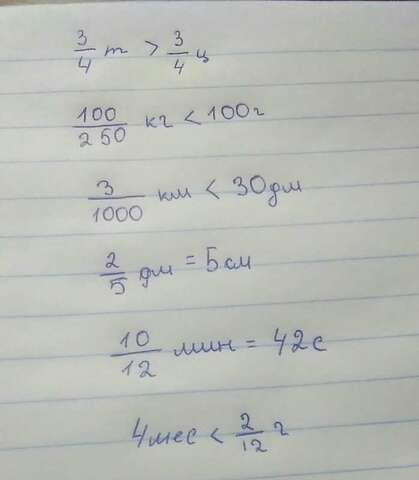 3/4 т > 3/4 ц
100/250 кг < 100г
3/1000 км < 30дм
2/5 дм = 5см
10/12 мин = 42с
4мес < 2/12 г